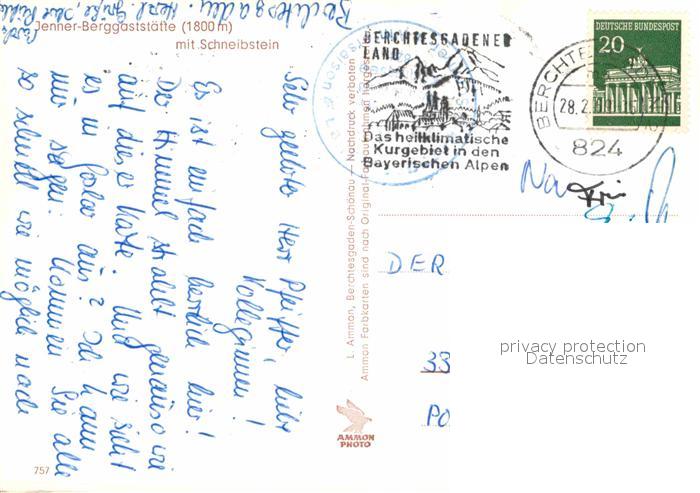 Jenner-Berggaststätte (1800 m)
mit Schneibstein
Sehr geehrter Herr Pfeiffer, liebe
Kolleginnen!
Es ist einfach herrlich hier!
Der Himmel strahlt genauso wie
auf dieser Karte. Und wie sieht
es in Goslar aus? Ich kann
nur sagen: Kommen Sie alle
so schnell wie möglich nach
Berchtesgaden. Herzl. Grüße,
L. Ammon, Berchtesgaden-Schönau — Nachdruck verboten
Ammon Farbkarten sind nach Original-Farbaufnahmen hergest
AMMON
PHOTO
757
BERCHTESGADENER
LAND
Das heilklimatische
Kurgebiet in den
Bayerischen Alpen
DEUTSCHE BUNDESPOST
20
28.2.
824
DER
33
PO
privacy protection
Datenschutz